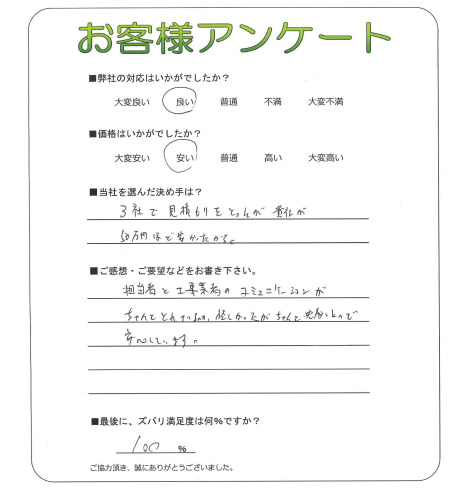 お客様アンケート
■弊社の対応はいかがでしたか？
大変良い 良い 普通 不満 大変不満
■価格はいかがでしたか？
大変安い 安い 普通 高い 大変高い
■当社を選んだ決め手は？
3社で見積もりをとったが貴社が
50万円ほど安かったから。
■ご感想・ご要望などをお書き下さい。
担当者と工事業者のコミュニケーションが
ちゃんととれて 怪しかったがちゃんと ので
安心しています。
■最後に、ズバリ満足度は何％ですか？
100 %
ご協力頂き、誠にありがとうございました。